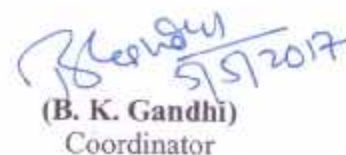 5/5/2017
(B. K. Gandhi)
Coordinator